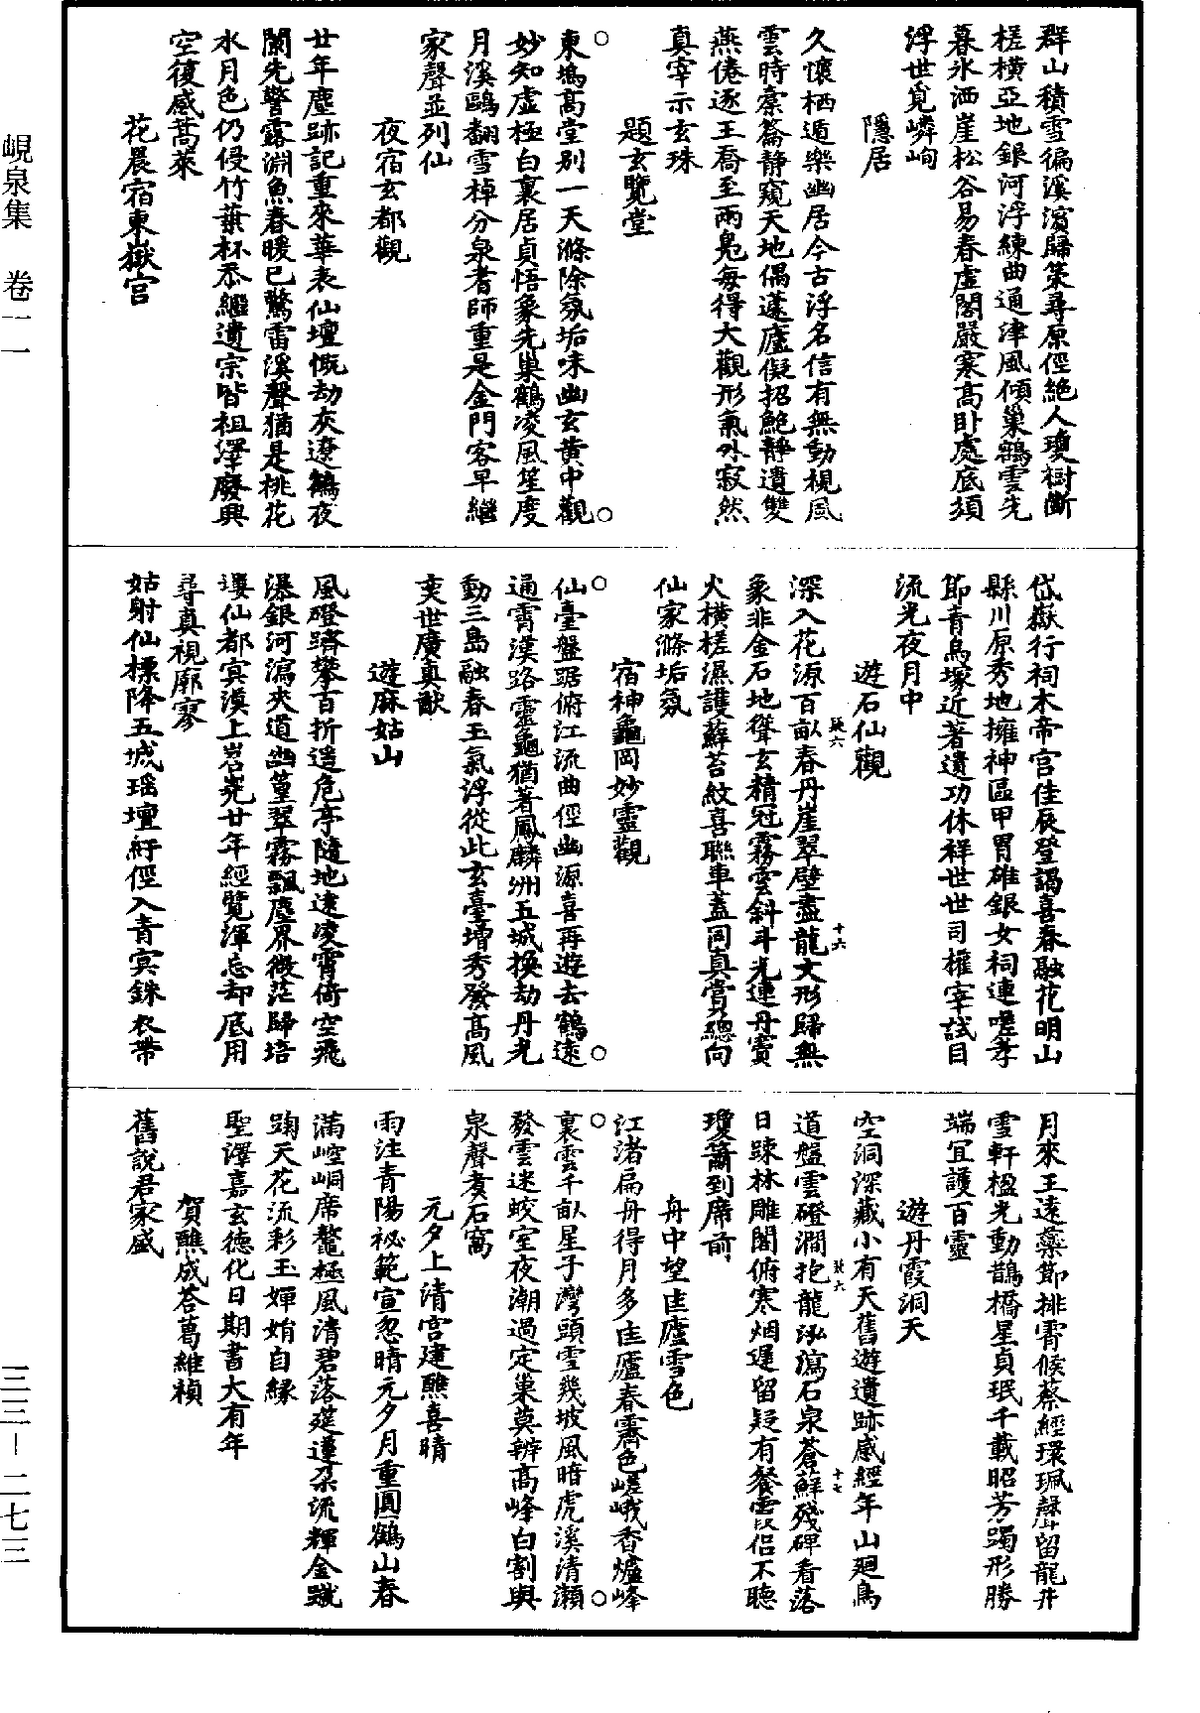 群山積雪徧溪濱歸策尋原徑絶人瓊樹斷
槎橫亞地銀河浮練曲通津風傾巢鶴雲先
暮氷洒崖松谷易春虛閣嚴寒高卧處底須
浮世覓嶙峋
隱居
久懷栖遁樂幽居今古浮名信有無動視風
雲時療籥靜窺天地偶蘧廬儗招鮑靜遺雙
燕倦逐王喬至兩鳬每得大觀形氣外寂然
真宰示玄珠
題玄覽堂
東塢高堂别一天滌除氛垢味幽玄黄中觀
妙知虛極白裏居貞悟象先巢鶴凌風笙度
月溪鷗翻雪棹分泉耆師重是金門客早繼
家聲並列仙
夜宿玄都觀
廿年塵跡記重來華表仙壇慨劫灰遼鶴夜
闌先警露淵魚春暖已驚雷溪聲猶是桃花
水月色仍侵竹葉杯忝繼遺宗皆祖澤廢興
空復感蒿萊
花晨宿東嶽宫
岱嶽行祠木帝宫佳辰登謁喜春融花明山
縣川原秀地擁神區甲胃碓銀女祠連嗟孝
節青烏塚近著遺功休祥世世司權宰試目
流光夜月中
遊石仙觀
深入花源百畝春丹崖翠壁盡龍文形歸無
象非金石地聳玄精冠霧雲斜斗光連丹竇
火橫槎濕護蘚苔紋喜聯車蓋同真賞總向
仙家滌垢氛
宿神龜岡妙靈觀
仙臺盤踞俯江流曲徑幽源喜再遊去鶴遠
通霄漢路靈龜猶著鳳麟洲五城換劫丹光
動三島融春玉氣浮從此玄臺增秀發高風
奕世廣真猷
遊麻姑山
風磴躋攀百折遥危亭隨地逺凌霄倚空飛
瀑銀河瀉夾道幽篁翠霧飄塵界微茫歸培
塿仙都㝠漠上岧嶤廿年經覽渾忘却底用
尋真視廓寥
姑射仙標降五城瑶壇紆徑入青㝠銖衣帶
月來王遠藥節排霄候蔡經環珮聲留龍井
雪軒楹光動鵲橋星貞珉千載昭芳躅形勝
端宜護百靈
遊丹霞洞天
空洞深藏小有天舊遊遺跡感經年山廻鳥
道盤雲磴澗抱龍泓瀉石泉蒼蘚殘碑看落
日踈林雕閣俯寒烟遲留疑有餐霞侣不聽
瓊簫到席前
舟中望匡廬雪色
江渚扁舟得月多匡廬春霽色嵯峨香爐峰
裏雲千畝星子灣頭雪幾坡風暗虎溪清瀬
發雲迷蛟室夜潮過定巢莫辨高峰白割與
泉聲煑石窩
元夕上清宫建醮喜晴
雨注青陽祕範宣忽晴元夕月重圓鶴山春
滿崆峒席鰲極風清碧落筵蓮朶流輝金蹴
踘天花流彩玉嬋娟自緣
聖澤嘉玄德化日期書大有年
賀醮成荅葛維楨
舊說君家盛
峴泉集　卷一一
三三－二七三